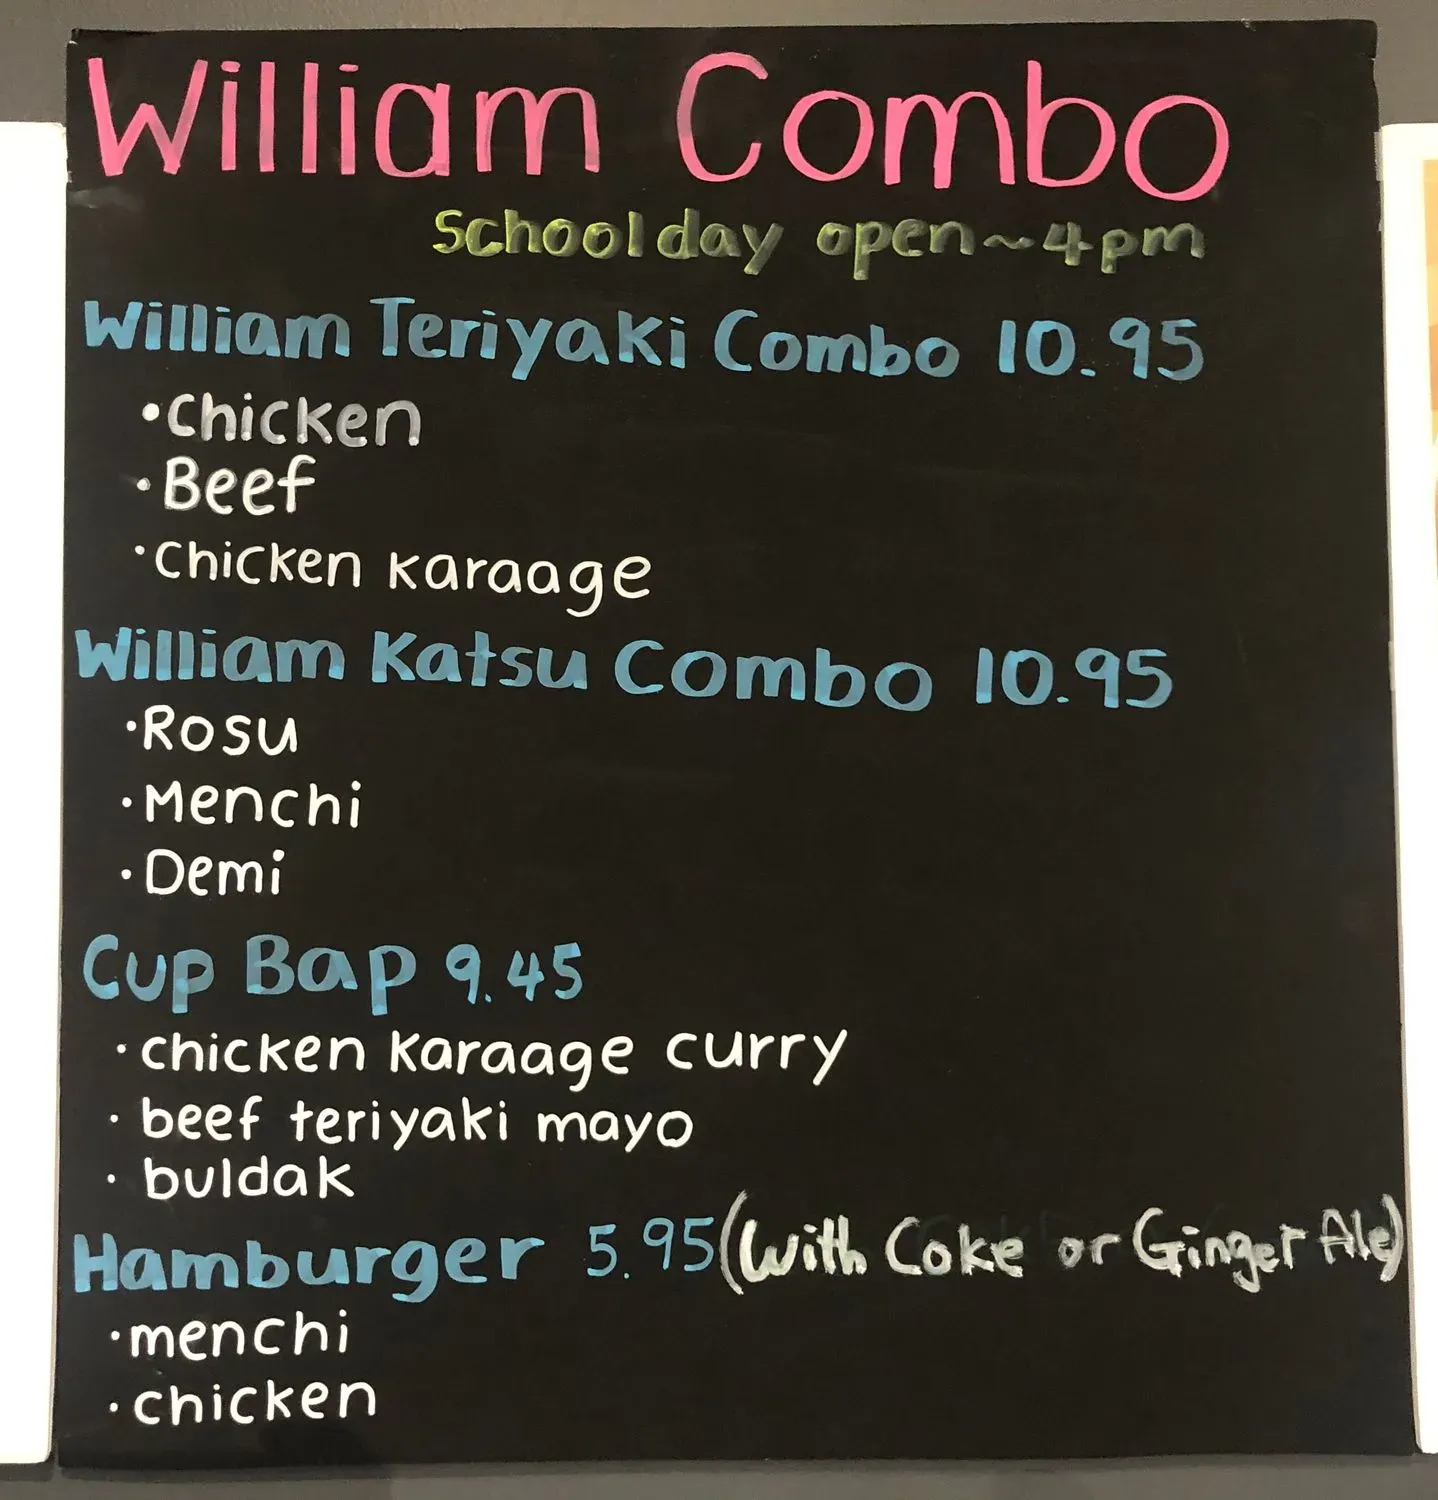 William Combo
School day open~4pm
William Teriyaki Combo 10.95
•Chicken
•Beef
•Chicken karaage
William Katsu Combo 10.95
•Rosu
•Menchi
•Demi
Cup Bap 9.45
•chicken karaage curry
•beef teriyaki mayo
•buldak
Hamburger 5.95 (with Coke or Ginger Ale)
•menchi
•chicken